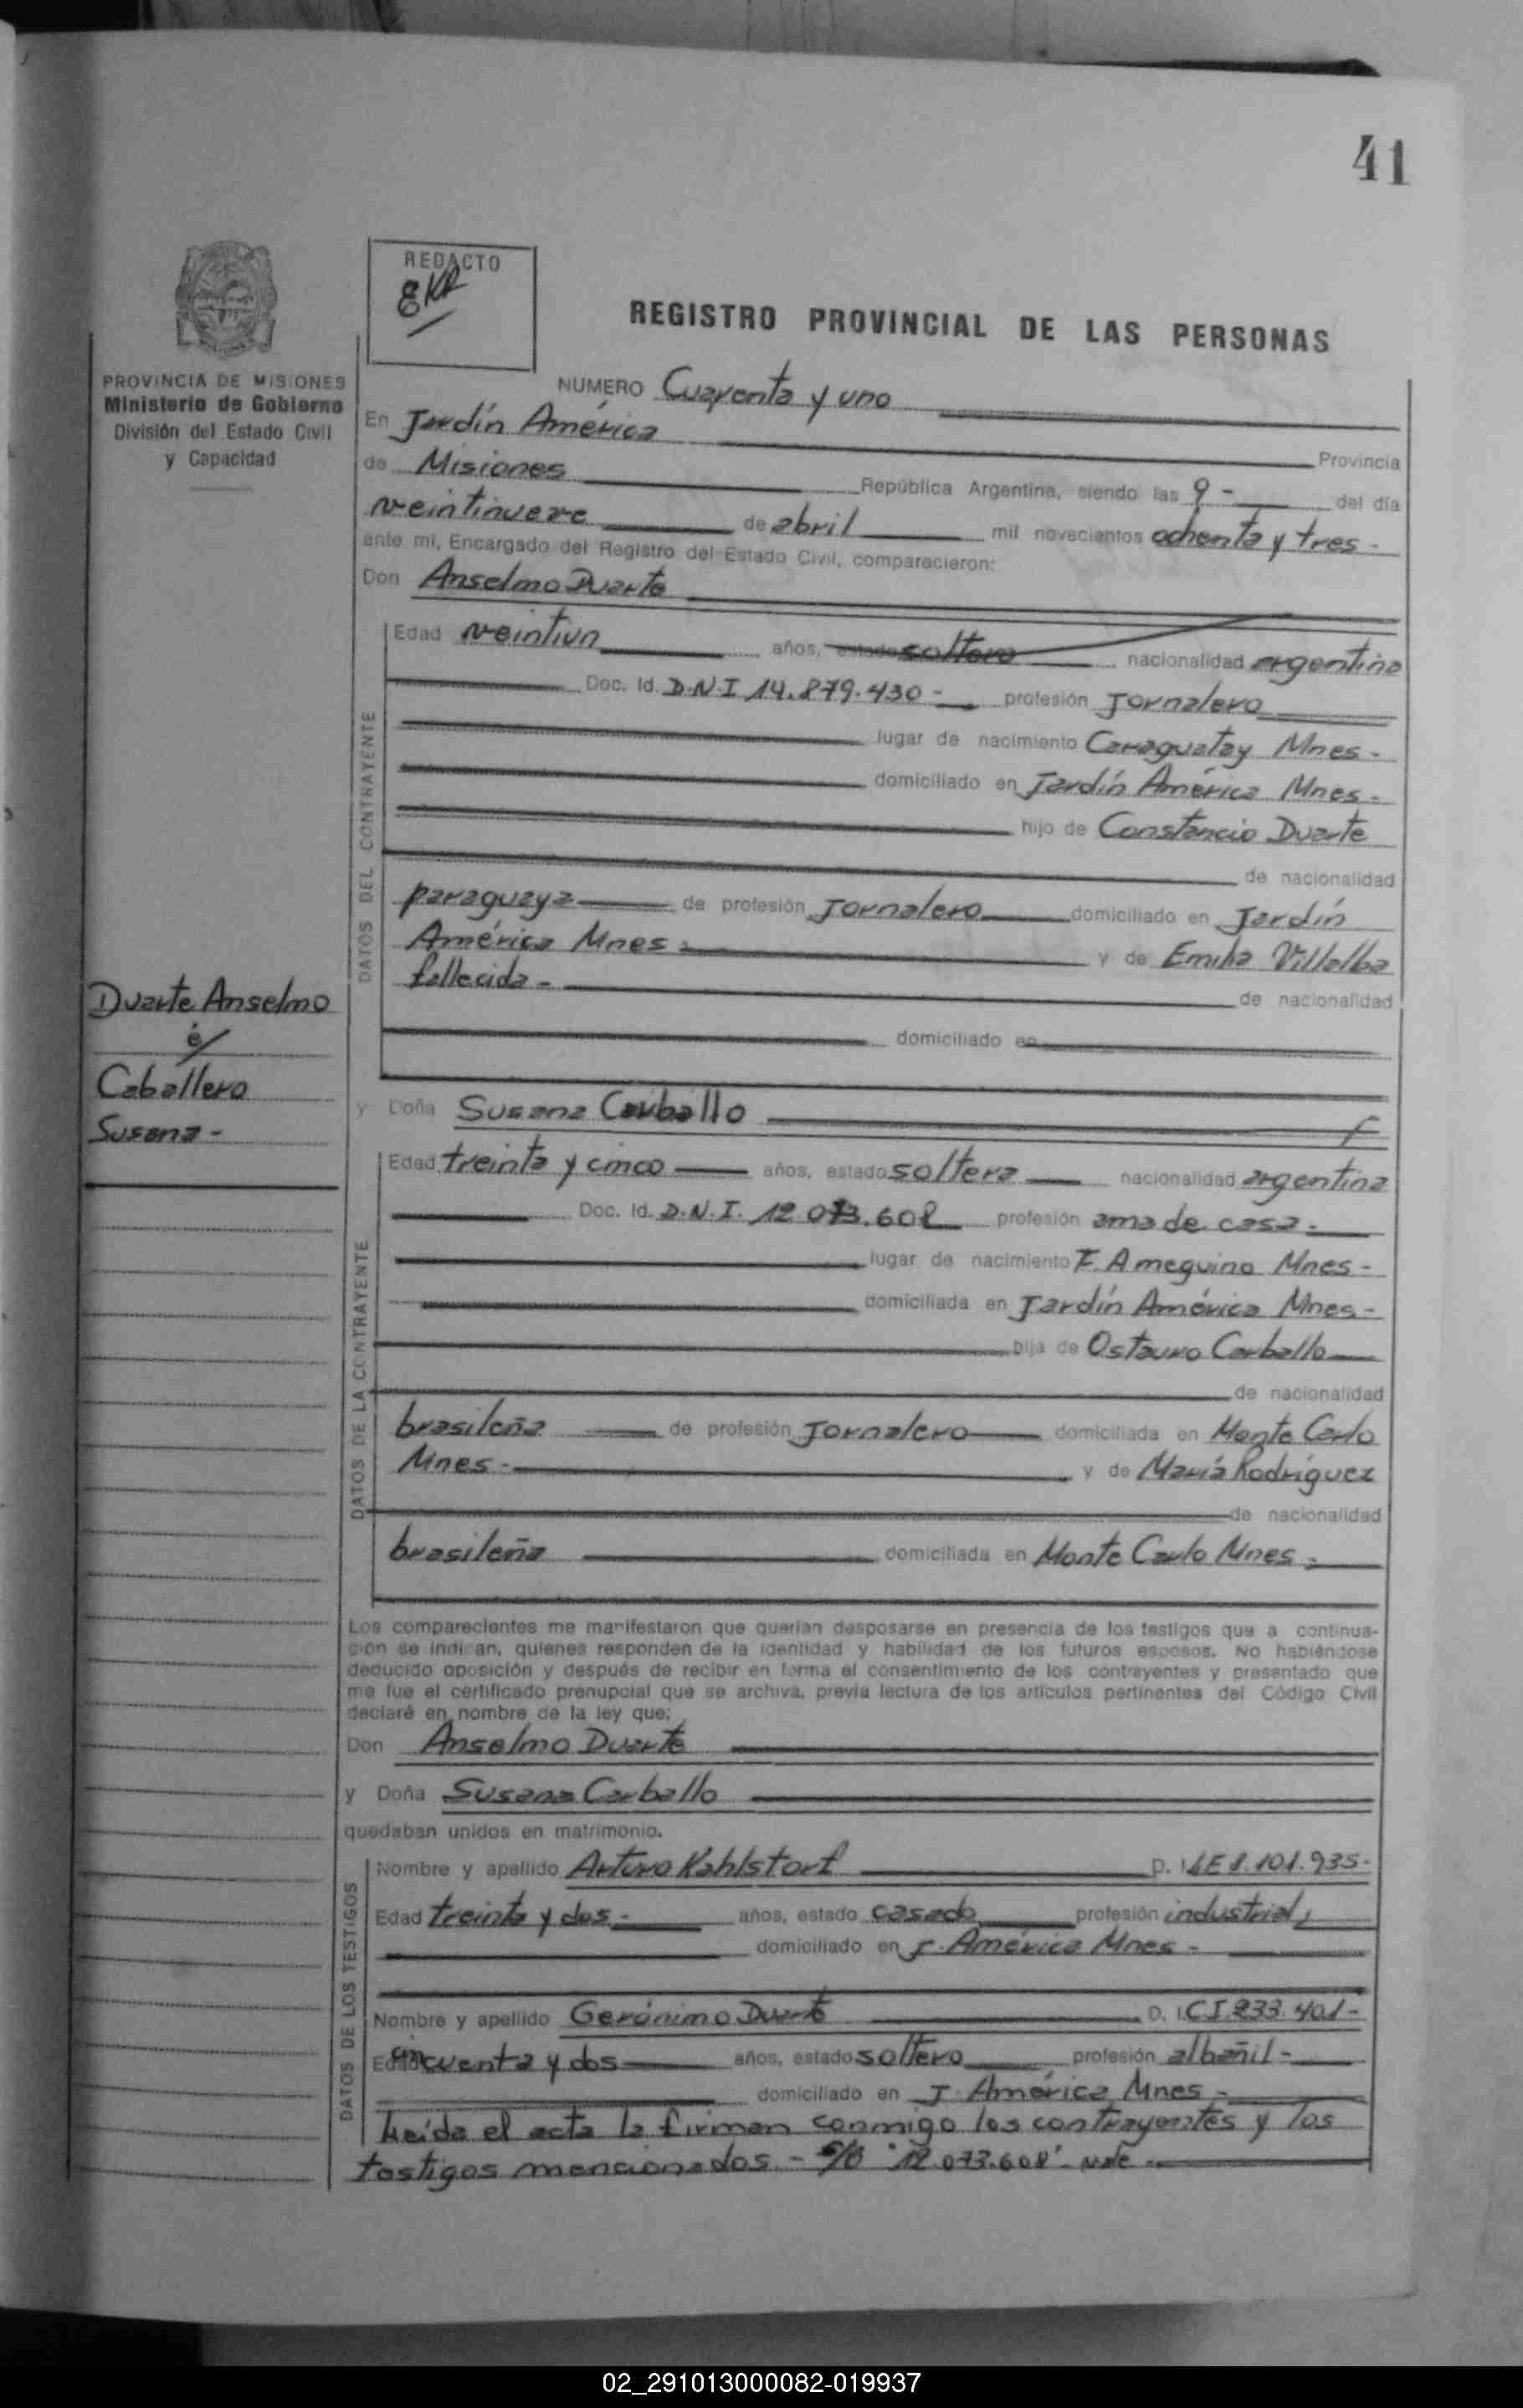 41
REDACTO
EKR
REGISTRO PROVINCIAL DE LAS PERSONAS
PROVINCIA DE MISIONES
Ministerio de Gobierno
División del Estado Civil
y Capacidad
NUMERO Cuarenta y uno
En Jardín América Provincia
de Misiones República Argentina, siendo las 9 - del día
veintinueve de abril mil novecientos ochenta y tres -
ante mi, Encargado del Registro del Estado Civil, comparecieron:
Don Anselmo Duarte
Edad veintiun años, estado soltero nacionalidad argentina
Doc. Id. D.N.I 14.879.430 - profesión Jornalero
lugar de nacimiento Caraguatay Mnes -
domiciliado en Jardín América Mnes -
hijo de Constancio Duarte
de nacionalidad
paraguaya de profesión Jornalero domiciliado en Jardín
América Mnes - y de Emilia Villalba
fallecida - de nacionalidad
domiciliado en
DATOS DEL CONTRAYENTE
Duarte Anselmo
é/
Caballero
Susana -
y Doña Susana Carballo
Edad treinta y cinco años, estado soltera nacionalidad argentina
Doc. Id. D.N.I. 12.073.608 profesión ama de casa -
lugar de nacimiento F. Ameguino Mnes -
domiciliada en Jardín América Mnes -
hija de Ostauro Carballo
de nacionalidad
brasileña de profesión Jornalero domiciliada en Monte Carlo
Mnes - y de María Rodríguez
de nacionalidad
brasileña domiciliada en Monte Carlo Mnes -
DATOS DE LA CONTRAYENTE
Los comparecientes me manifestaron que querían desposarse en presencia de los testigos que a continua-
ción se indican, quienes responden de la identidad y habilidad de los futuros esposos. No habiéndose
deducido oposición y después de recibir en forma el consentimiento de los contrayentes y presentado que
me fue el certificado prenupcial que se archiva, previa lectura de los artículos pertinentes del Código Civil
declaré en nombre de la ley que:
Don Anselmo Duarte
y Doña Susana Carballo
quedaban unidos en matrimonio.
Nombre y apellido Arturo Kahlstorf D. I. LE 8.101.935-
Edad treinta y dos - años, estado casado profesión industrial,
domiciliado en J. América Mnes -
Nombre y apellido Gerónimo Duarte D. I. C.I. 233.401 -
Edad cincuenta y dos años, estado soltero profesión albañil -
domiciliado en J. América Mnes -
DATOS DE LOS TESTIGOS
Leída el acta la firman conmigo los contrayentes y los
testigos mencionados - s/b "12.073.608" vale -
02_291013000082-019937